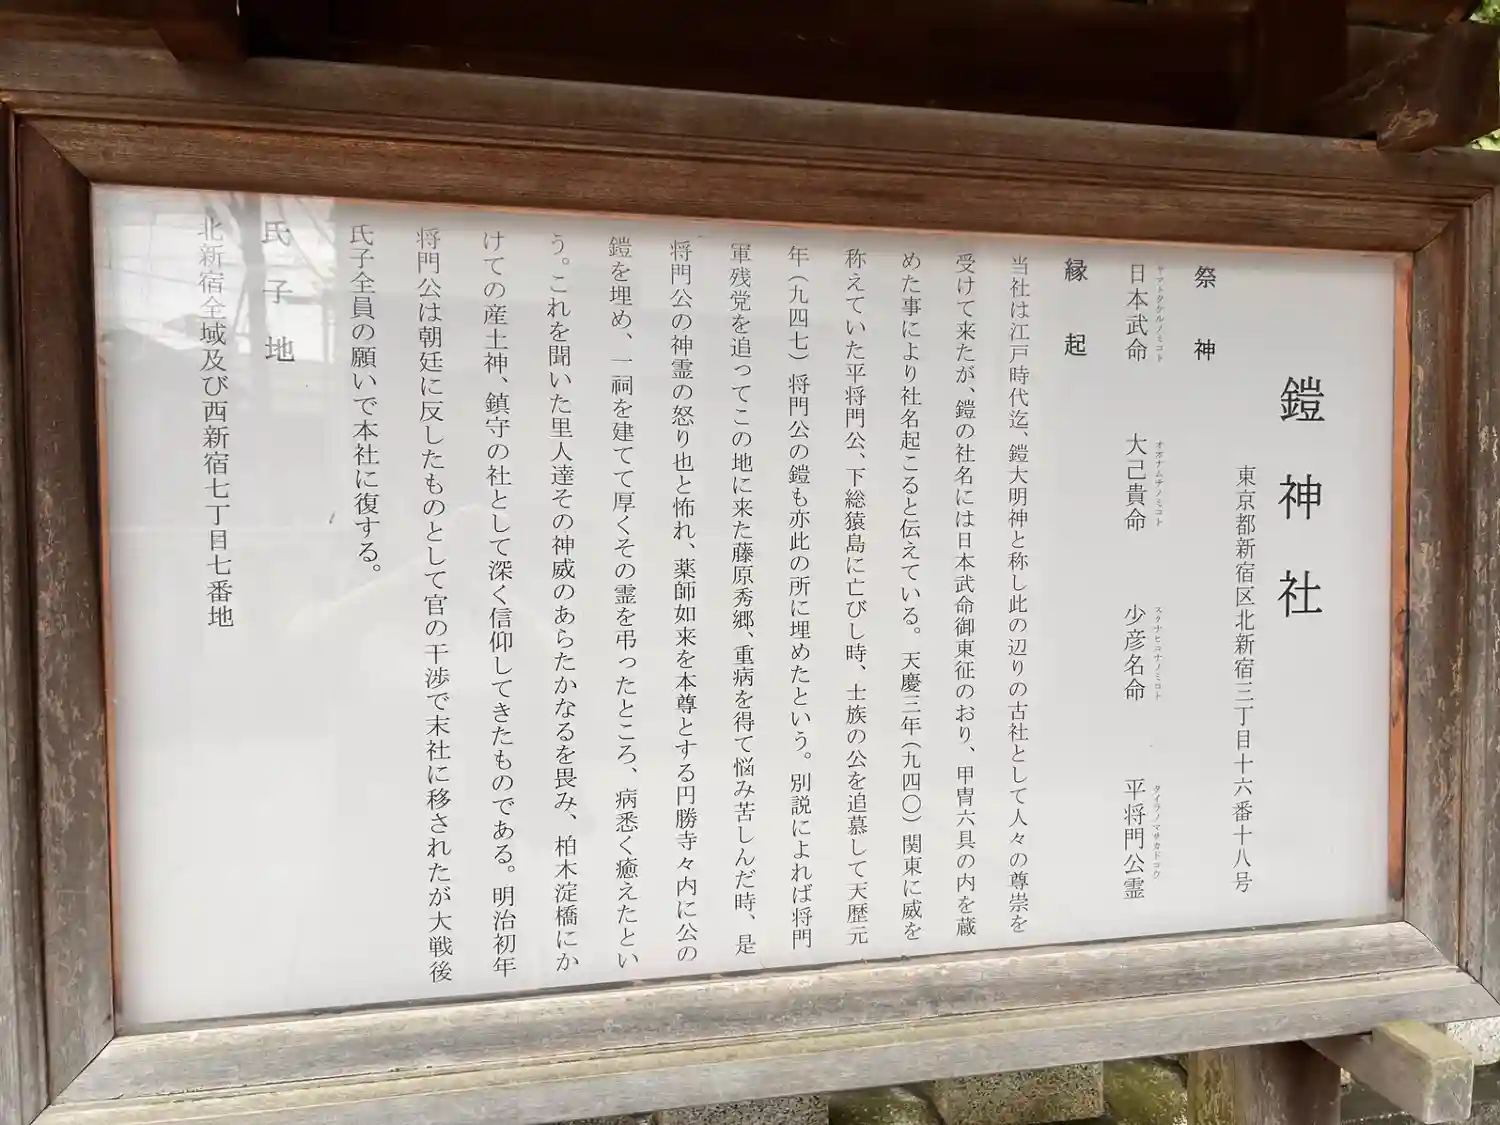 鎧神社
東京都新宿区北新宿三丁目十六番十八号
祭神
ヤマトタケルノミコト オオナムチノミコト スクナヒコナノミコト タイラノマサカドコウ
日本武命 大己貴命 少彦名命 平将門公霊
縁起
当社は江戸時代迄、鎧大明神と称し此の辺りの古社として人々の尊崇を
受けて来たが、鎧の社名には日本武命御東征のおり、甲冑六具の内を蔵
めた事により社名起こると伝えている。天慶三年（九四〇）関東に威を
称えていた平将門公、下総猿島に亡びし時、土族の公を追慕して天歴元
年（九四七）将門公の鎧も亦此の所に埋めたという。別説によれば将門
軍残党を追ってこの地に来た藤原秀郷、重病を得て悩み苦しんだ時、是
将門公の神霊の怒り也と怖れ、薬師如来を本尊とする円勝寺々内に公の
鎧を埋め、一祠を建てて厚くその霊を弔ったところ、病悉く癒えたとい
う。これを聞いた里人達その神威のあらたかなるを畏み、柏木淀橋にか
けての産土神、鎮守の社として深く信仰してきたものである。明治初年
将門公は朝廷に反したものとして官の干渉で末社に移されたが大戦後
氏子全員の願いで本社に復する。
氏子地
北新宿全域及び西新宿七丁目七番地